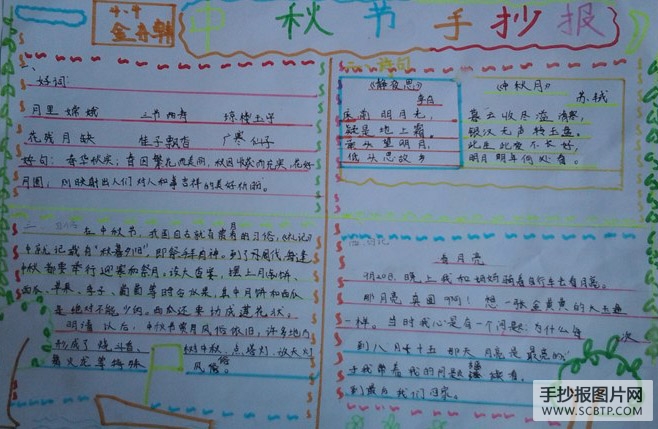 4.4
中秋节手抄报
一、
好词:
月里嫦娥
琼楼玉宇
花残月缺 桂子飘香 广寒仙子
好句:春华秋实;春因繁花而美丽,秋因
月圆,则映射出人们对人和事吉祥的美好
二、
在中秋节,我国自古就有赏月的习俗,《礼记》
中就记载有“秋暮夕月”,即祭拜月神。到了周代,每逢
中秋都要举行迎寒和祭月,设大香案,摆上月饼、
西瓜、苹果、李子、葡萄等时令水果,其中月饼和西瓜
是绝对不能少的。西瓜还要切成莲花状。
明清以后,中秋节赏月风俗依旧,许多地方
形成了烧斗香、 树中秋、点塔灯、放天灯
舞火龙等特殊 风俗。
三、诗句
《静夜思》
李白
床前明月光,
疑是地上霜。
举头望明月,
低头思故乡
《中秋月》
苏轼
暮云收尽溢清寒,
银汉无声转玉盘。
此生此夜不长好,
明月明年何处看。
四、日记
看月亮
9月20日,晚上我和奶奶骑着自行车去看月亮。
那月亮真圆啊!想一张金黄黄的大玉盘
一样。当时我心里有一个问题:为什么每 次
到八月十五那天月亮是最亮的
于我带着我的问题
我们回家。
手抄报图片网
WWW.SCBTP.COM